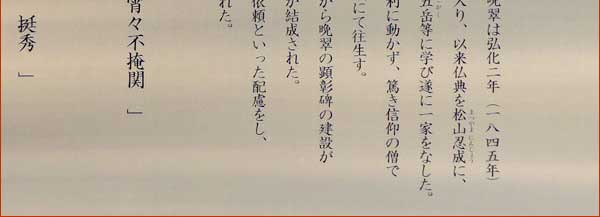 晩翠は弘化二年（一八四五年）
入り、以来仏典を松山忍成に、
まつやまにんじょう
五岳等に学び遂に一家をなした。
ごがく
利に動かず、篤き信仰の僧で
にて往生す。
から晩翠の顕彰碑の建設が
が結成された。
依頼といった配慮をし、
れた。
宵々不掩関 」
挺秀 」